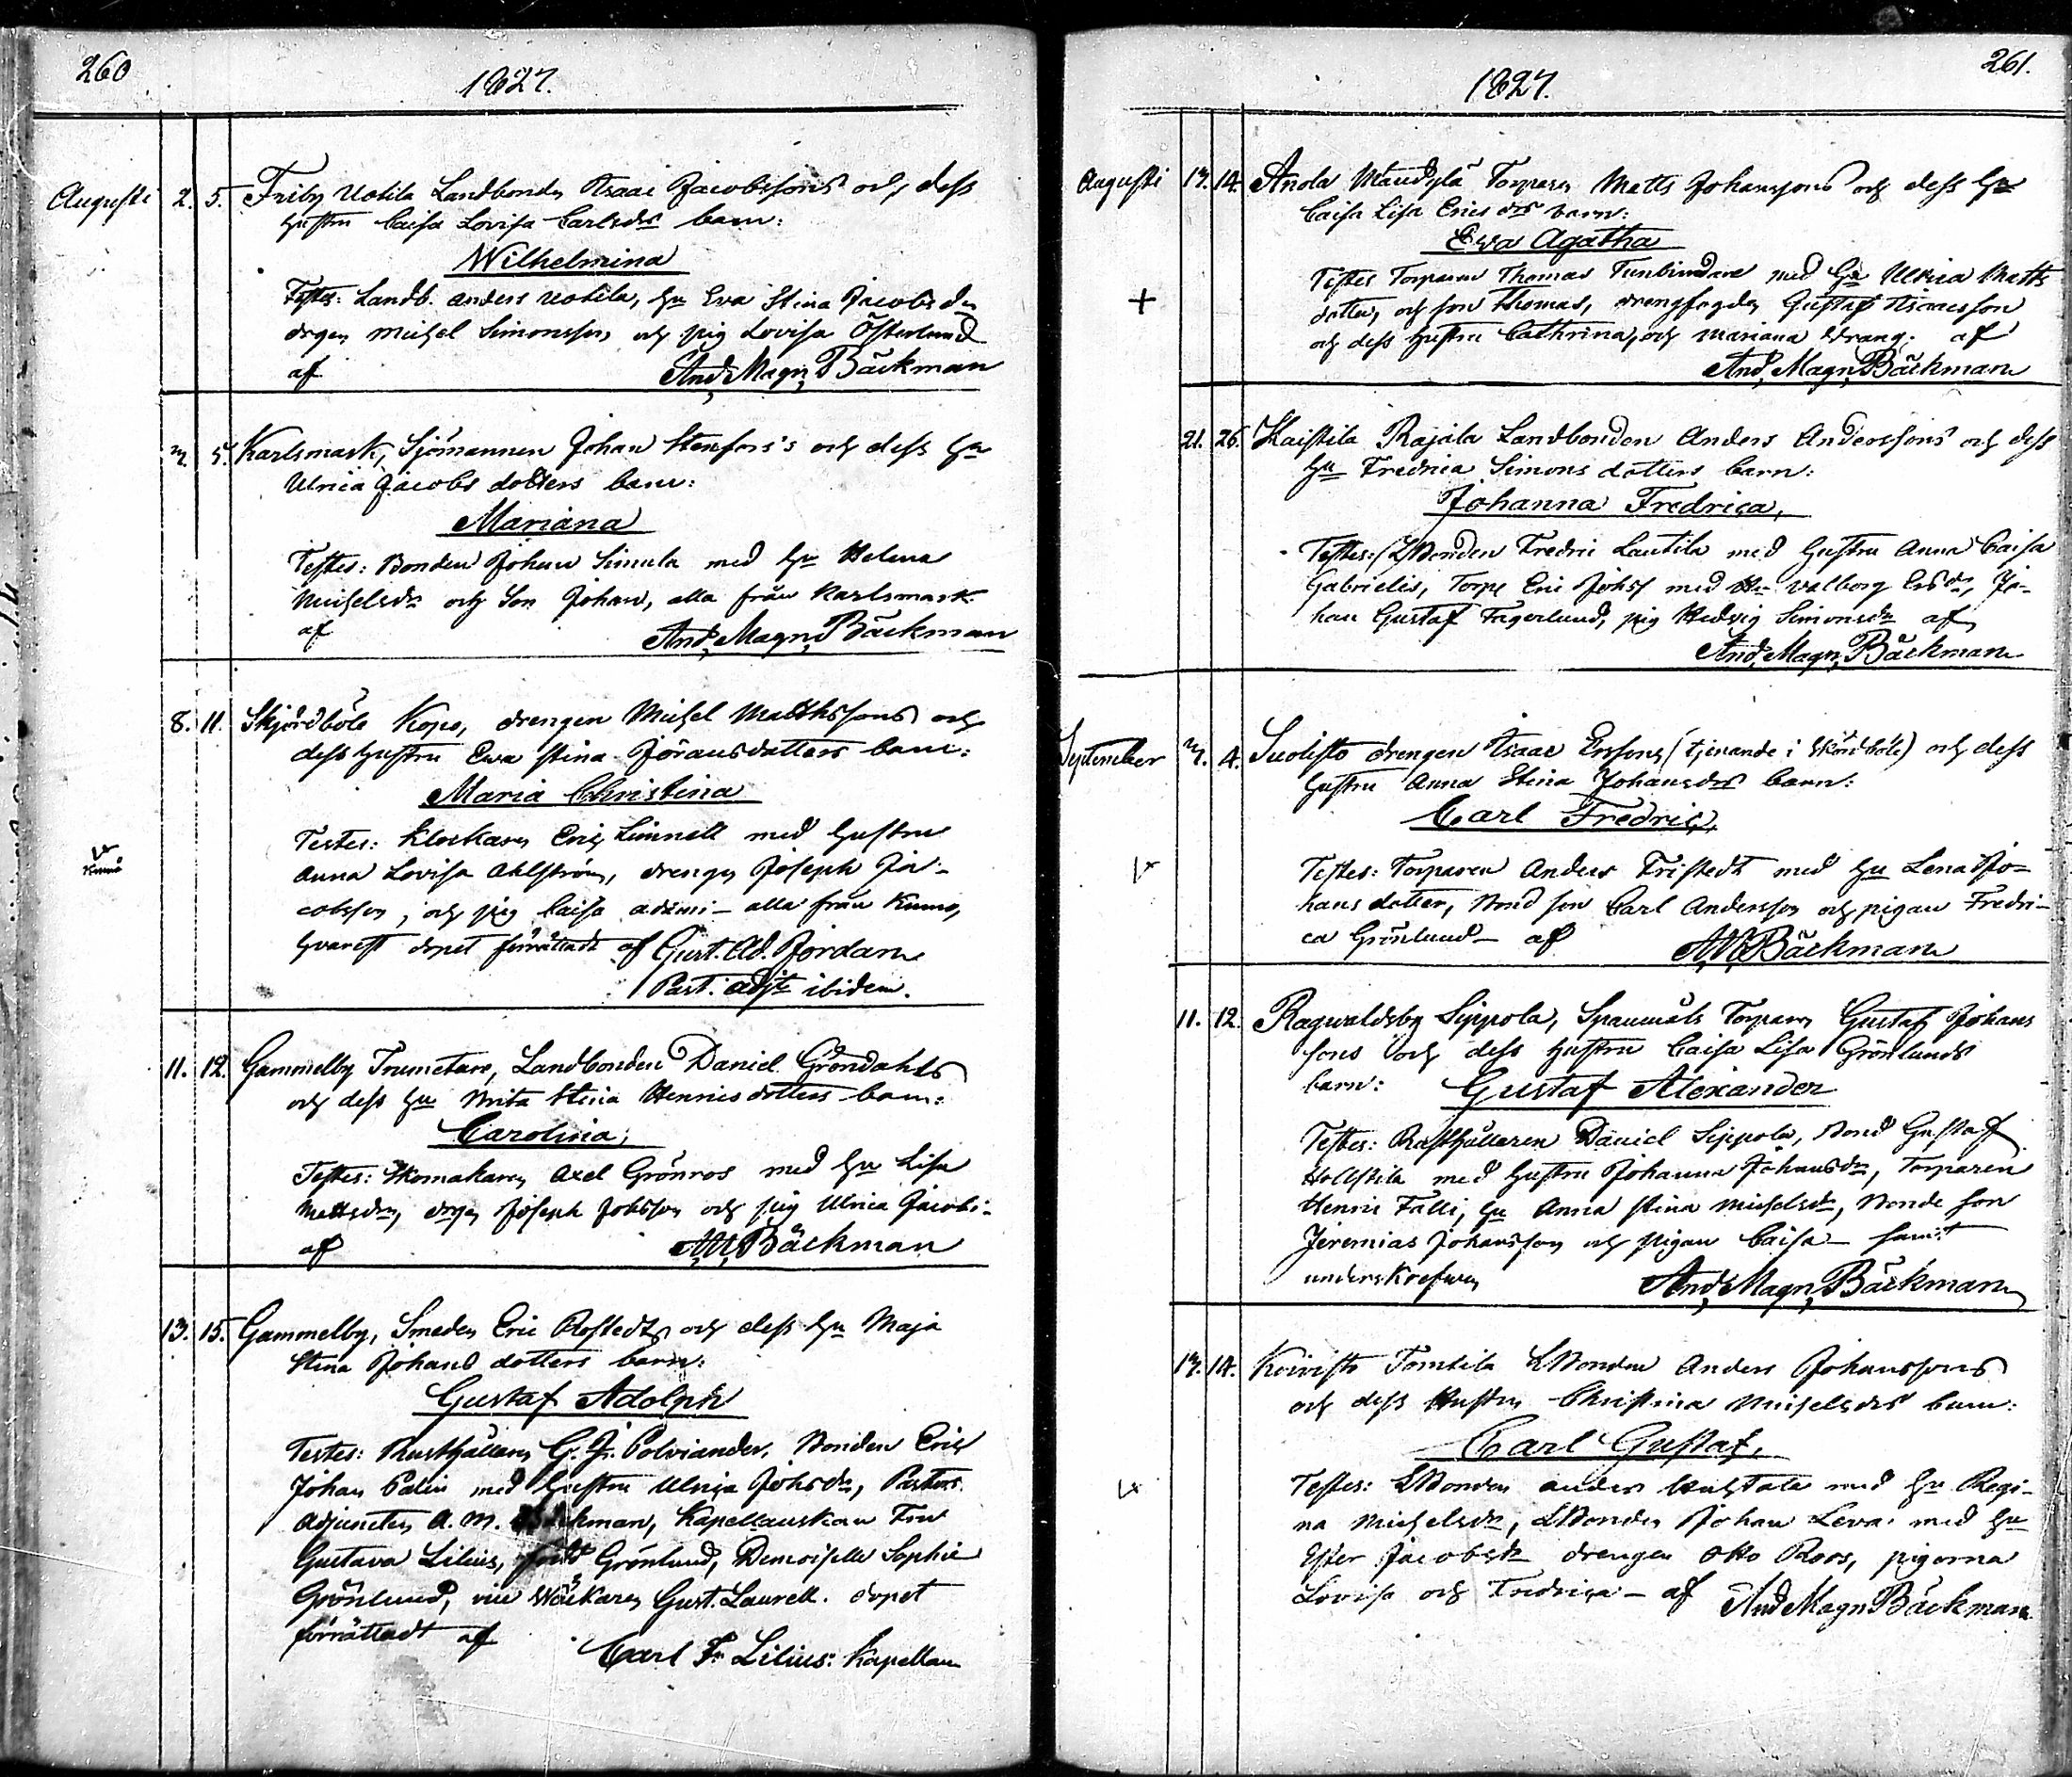 260
1827.
Augusti 2. 5. Friby Uotila Landbonden Isaac Jacobssons och dess
hustru Caisa Lovisa Carlsdrs barn:
Wilhelmina
Testes: Landb. Anders Uotila, hu Eva Stina Jacobsdr
drgen Michel Simonsson och pig Lovisa Österlund
af And. Magn. Bäckman
3. 5. Karlsmark, Sjömannen Johan Stenfors's och dess hu
Ulrica Jacobs dotters barn:
Mariana
Testes: Bonden Johan Simula med hu Helena
Michelsdr och Son Johan, alla från Karlsmark
af And. Magn. Bäckman
8. 11. Skjördböle Kopo, drengen Michel Matthssons och
dess hustru Ewa Stina Jöransdotters barn:
Maria Christina
Testes: Klockaren Eric Limnell med hustru
Kumo
Anna Lovisa Ahlström, drengen Joseph Ja-
cobsson, och pig Caisa – alla från Kumo,
hvarest dopet förrättadt af Gust. Ad. Jordan
Past. adjt. ibidem.
11. 12. Gammelby Trumetare, Landbonden Daniel Gröndahls
och dess hu Brita Stina Henricsdotters barn:
Carolina,
Testes: Skomakaren Axel Grönros med hu Lisa
Mattsdr, drgen Joseph Jobsson och pig Ulrica Jacobi-
af A. M. Bäckman
13. 15. Gammelby, Smeden Eric Rostedts och dess hu Maja
Stina Johans dotters barn:
Gustaf Adolph
Testes: Rusthållaren G. J. Polviander, Bonden Eric
Johan Palin med hustru Ulrica Johsdr, Pastors
Adjuncten A. M. Bäckman, Kapellanskan Fru
Gustava Lilius, född Grönlund, Demoiselle Sophie
Grönlund, Gust. Laurell. dopet
förrättadt af
Carl Fr. Lilius: Kapellan
261.
1827.
Augusti 13. 14. Anola Torparen Matts Johanssons och dess hu
Caisa Lisa Erics drs barn:
Eva Agatha
Testes Torparen Thomas Tunbindare med hu Ulrica Matts
+ dotter, och son Thomas, drengfogden Gustaf Isaacsson
och dess hustru Cathrina, och Mariana Wrang. af
And. Magn. Bäckman
21. 26. Kaistila Rajala Landbonden Anders Anderssons och dess
hu Fredrica Simons dotters barn:
Johanna Fredrica,
Testes: LBonden Fredric Lautila med hustru Anna Caisa
Gabrielis, Torp. Eric Johss med Hu Valborg Ersdr, Jo-
han Gustaf Fagerlund, pig Hedvig Simonsdr af
And. Magn. Bäckman
September 3. 4. Suolisto drengen Isaac Erssons (tjenande i Skördböle) och dess
hustru Anna Stina Johansdrs barn:
Carl Fredric,
Testes: Torparen Anders Fristedt med hu Lena Jo-
hans dotter, Bond son Carl Andersson och pigan Fredri-
ca Grönlund – af A. M. Bäckman
11. 12. Ragwaldsby Sippola, Spanmåls Torparen Gustaf Johans
sons och dess hustru Caisa Lisa Grönlunds
barn: Gustaf Alexander
Testes: Rusthållaren Daniel Sippola, Bond Gustaf
med hustru Johanna Johansdr, Torparen
Henric Falli, hu Anna Stina Michelsdr, Bonde son
Jeremias Johansson och pigan Caisa – samt
underskrefven And. Magn. Bäckman
13. 14. Koivisto Tomtila LBonden Anders Johanssons
och dess Hustru Christina Michelsdrs barn:
Carl Gustaf,
Testes: LBonden Anders med hu Regi-
na Michelsdr, LBonden Johan Leva med hu
Ester Jacobsdr drengen Otto Roos, pigorna
Lovisa och Fredrica – af And Magn Bäckman